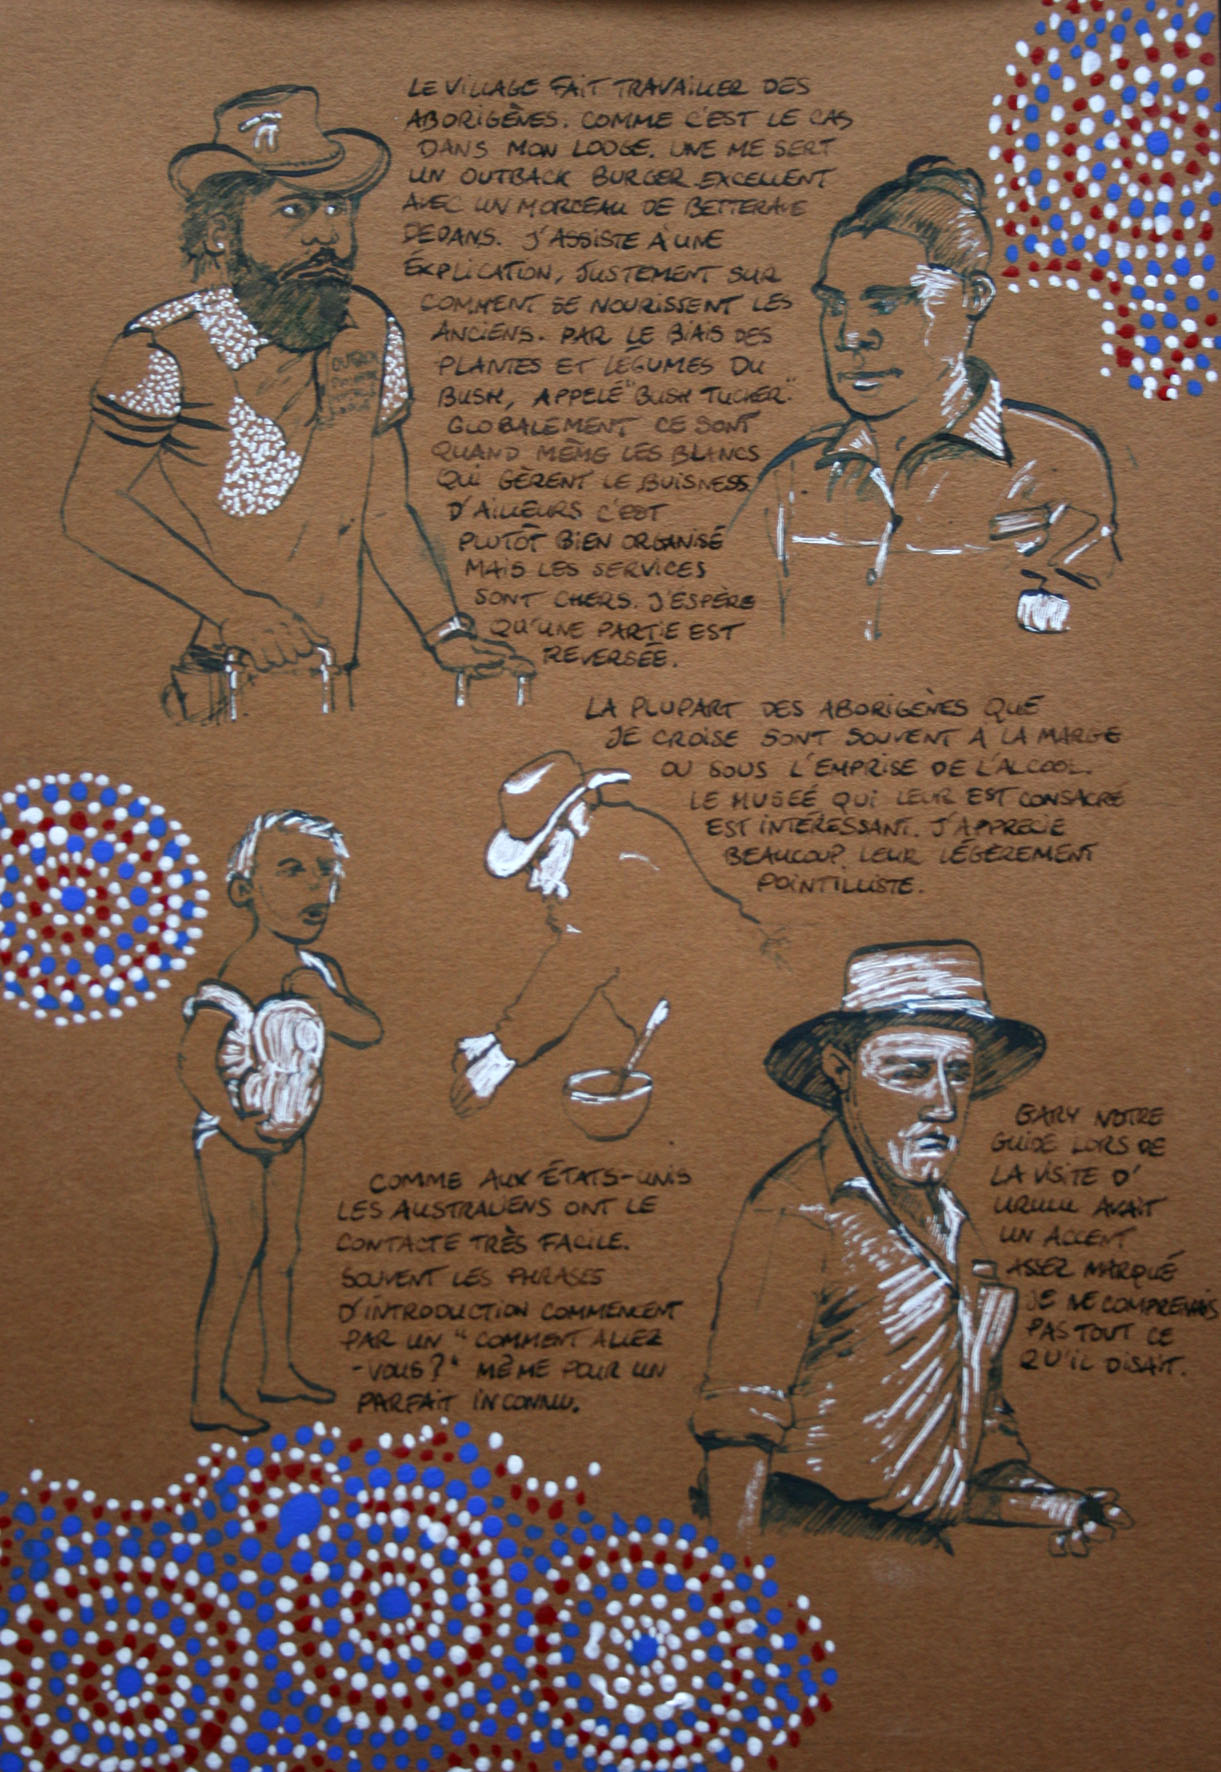 LE VILLAGE FAIT TRAVAILLER DES
ABORIGÈNES. COMME C'EST LE CAS
DANS MON LODGE. UNE ME SERT
UN OUTBACK BURGER EXCELLENT
AVEC UN MORCEAU DE BETTERAVE
DEDANS. J'ASSISTE À UNE
EXPLICATION, JUSTEMENT SUR
COMMENT SE NOURISSENT LES
ANCIENS. PAR LE BIAIS DES
PLANTES ET LÉGUMES DU
BUSH, APPELÉ "BUSH TUCKER".
GLOBALEMENT CE SONT
QUAND MÊME LES BLANCS
QUI GÈRENT LE BUISNESS
D'AILLEURS C'EST
PLUTÔT BIEN ORGANISÉ
MAIS LES SERVICES
SONT CHERS. J'ESPÈRE
QU'UNE PARTIE EST
REVERSÉE.
LA PLUPART DES ABORIGÈNES QUE
JE CROISE SONT SOUVENT A LA MARGE
OU SOUS L'EMPRISE DE L'ALCOOL.
LE MUSEÉ QUI LEUR EST CONSACRÉ
EST INTÉRESSANT. J'APPRECIE
BEAUCOUP LEUR LÉGÈREMENT
POINTILLISTE.
COMME AUX ÉTATS-UNIS
LES AUSTRALIENS ONT LE
CONTACTE TRÈS FACILE.
SOUVENT LES PHRASES
D'INTRODUCTION COMMENCENT
PAR UN "COMMENT ALLEZ
-VOUS?" MÊME POUR UN
PARFAIT INCONNU.
GARY NOTRE
GUIDE LORS DE
LA VISITE D'
URULU AVAIT
UN ACCENT
ASSEZ MARQUÉ
JE NE COMPRENAIS
PAS TOUT CE
QU'IL DISAIT.